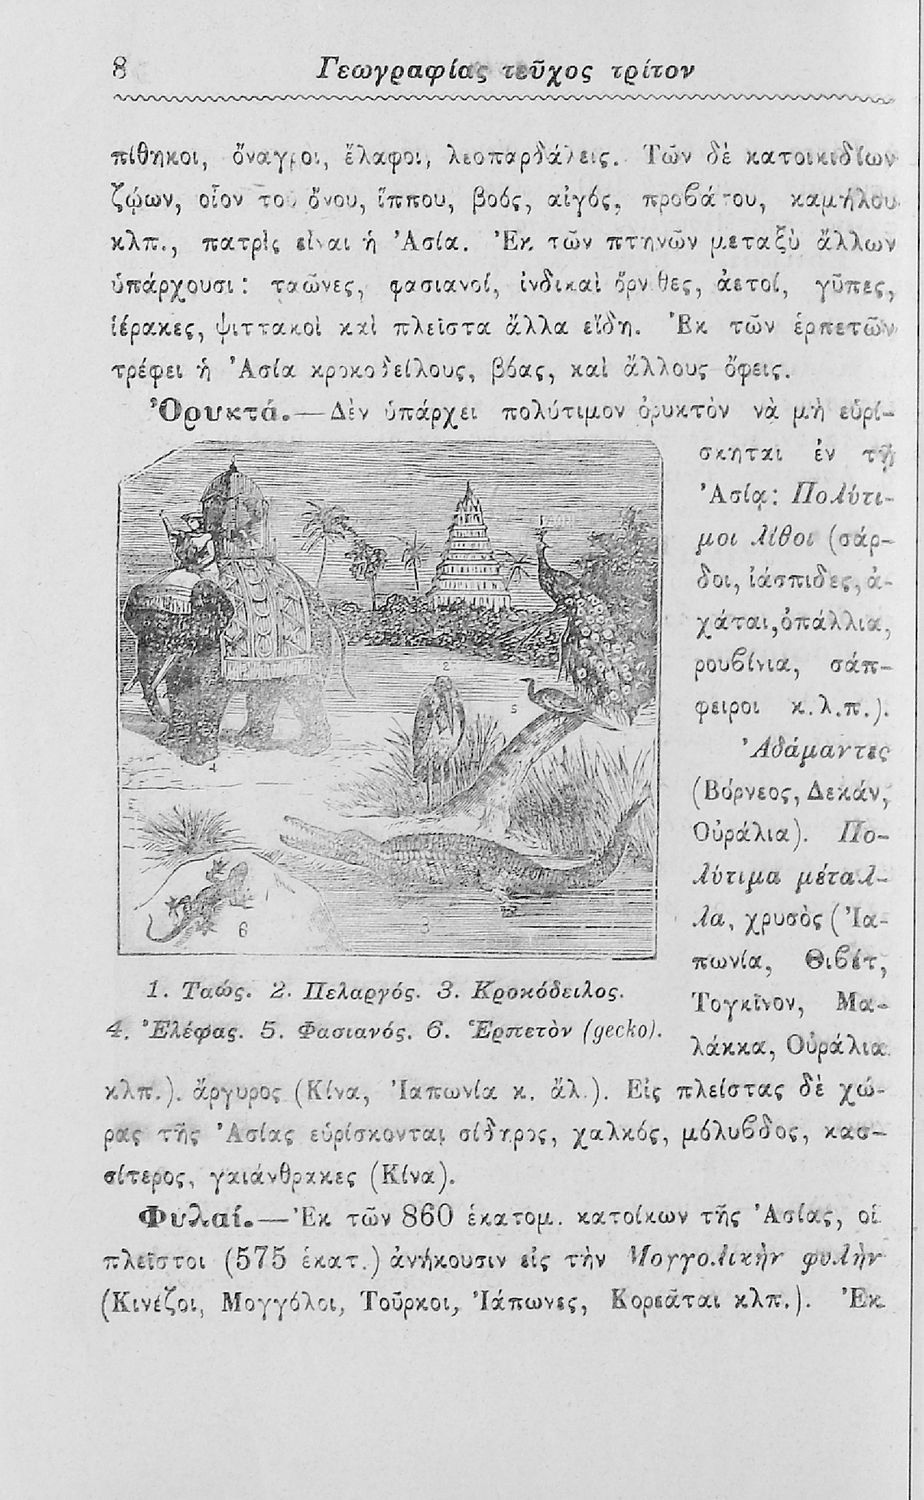 8 Γεωγραφίας τεῦχος τρίτον
πίθηκοι, ὄναγροι, ἔλαφοι, λεοπαρδάλεις. Τῶν δὲ κατοικιδίων
ζῴων, οἷον τοῦ ὄνου, ἵππου, βοός, αἰγός, προβάτου, καμήλου
κλπ., πατρὶς εἶναι ἡ Ἀσία. Ἐκ τῶν πτηνῶν μεταξὺ ἄλλων
ὑπάρχουσι: ταῶνες, φασιανοί, ἰνδικαὶ ὄρνιθες, ἀετοί, γῦπες,
ἱέρακες, ψιττακοὶ καὶ πλεῖστα ἄλλα εἴδη. Ἐκ τῶν ἑρπετῶν
τρέφει ἡ Ἀσία κροκοδείλους, βόας, καὶ ἄλλους ὄφεις.
Ὀρυκτά.—Δὲν ὑπάρχει πολύτιμον ὀρυκτὸν νὰ μὴ εὑρί-
σκηται ἐν τῇ
Ἀσίᾳ: Πολύτι-
μοι λίθοι (σάρ-
δοι, ἰάσπιδες, ἀ-
χάται, ὀπάλλια,
ρουβίνια, σάπ-
φειροι κ.λ.π.).
Ἀδάμαντες
(Βόρνεος, Δεκάν,
Οὐράλια). Πο-
λύτιμα μέταλ-
λα, χρυσὸς (Ἰα-
πωνία, Θιβέτ,
Τογκῖνον, Μα-
λάκκα, Οὐράλια
2
5
4
6
3
1. Ταώς. 2. Πελαργός. 3. Κροκόδειλος.
4. Ἐλέφας. 5. Φασιανός. 6. Ἑρπετὸν (gecko).
κλπ.). ἄργυρος (Κίνα, Ἰαπωνία κ. ἄλ.). Εἰς πλείστας δὲ χώ-
ρας τῆς Ἀσίας εὑρίσκονται σίδηρος, χαλκός, μόλυβδος, κασ-
σίτερος, γαιάνθρακες (Κίνα).
Φυλαί.—Ἐκ τῶν 860 ἑκατομ. κατοίκων τῆς Ἀσίας, οἱ
πλεῖστοι (575 ἑκατ.) ἀνήκουσιν εἰς τὴν Μογγολικὴν φυλὴν
(Κινέζοι, Μογγόλοι, Τοῦρκοι, Ἰάπωνες, Κορεᾶται κλπ.). Ἐκ